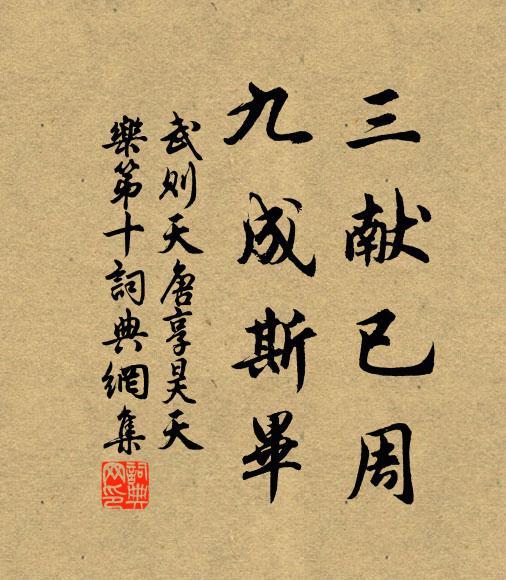 三献已周
九成斯畢
武则天唐享昊天
樂第十詞典網集
詞典
网印